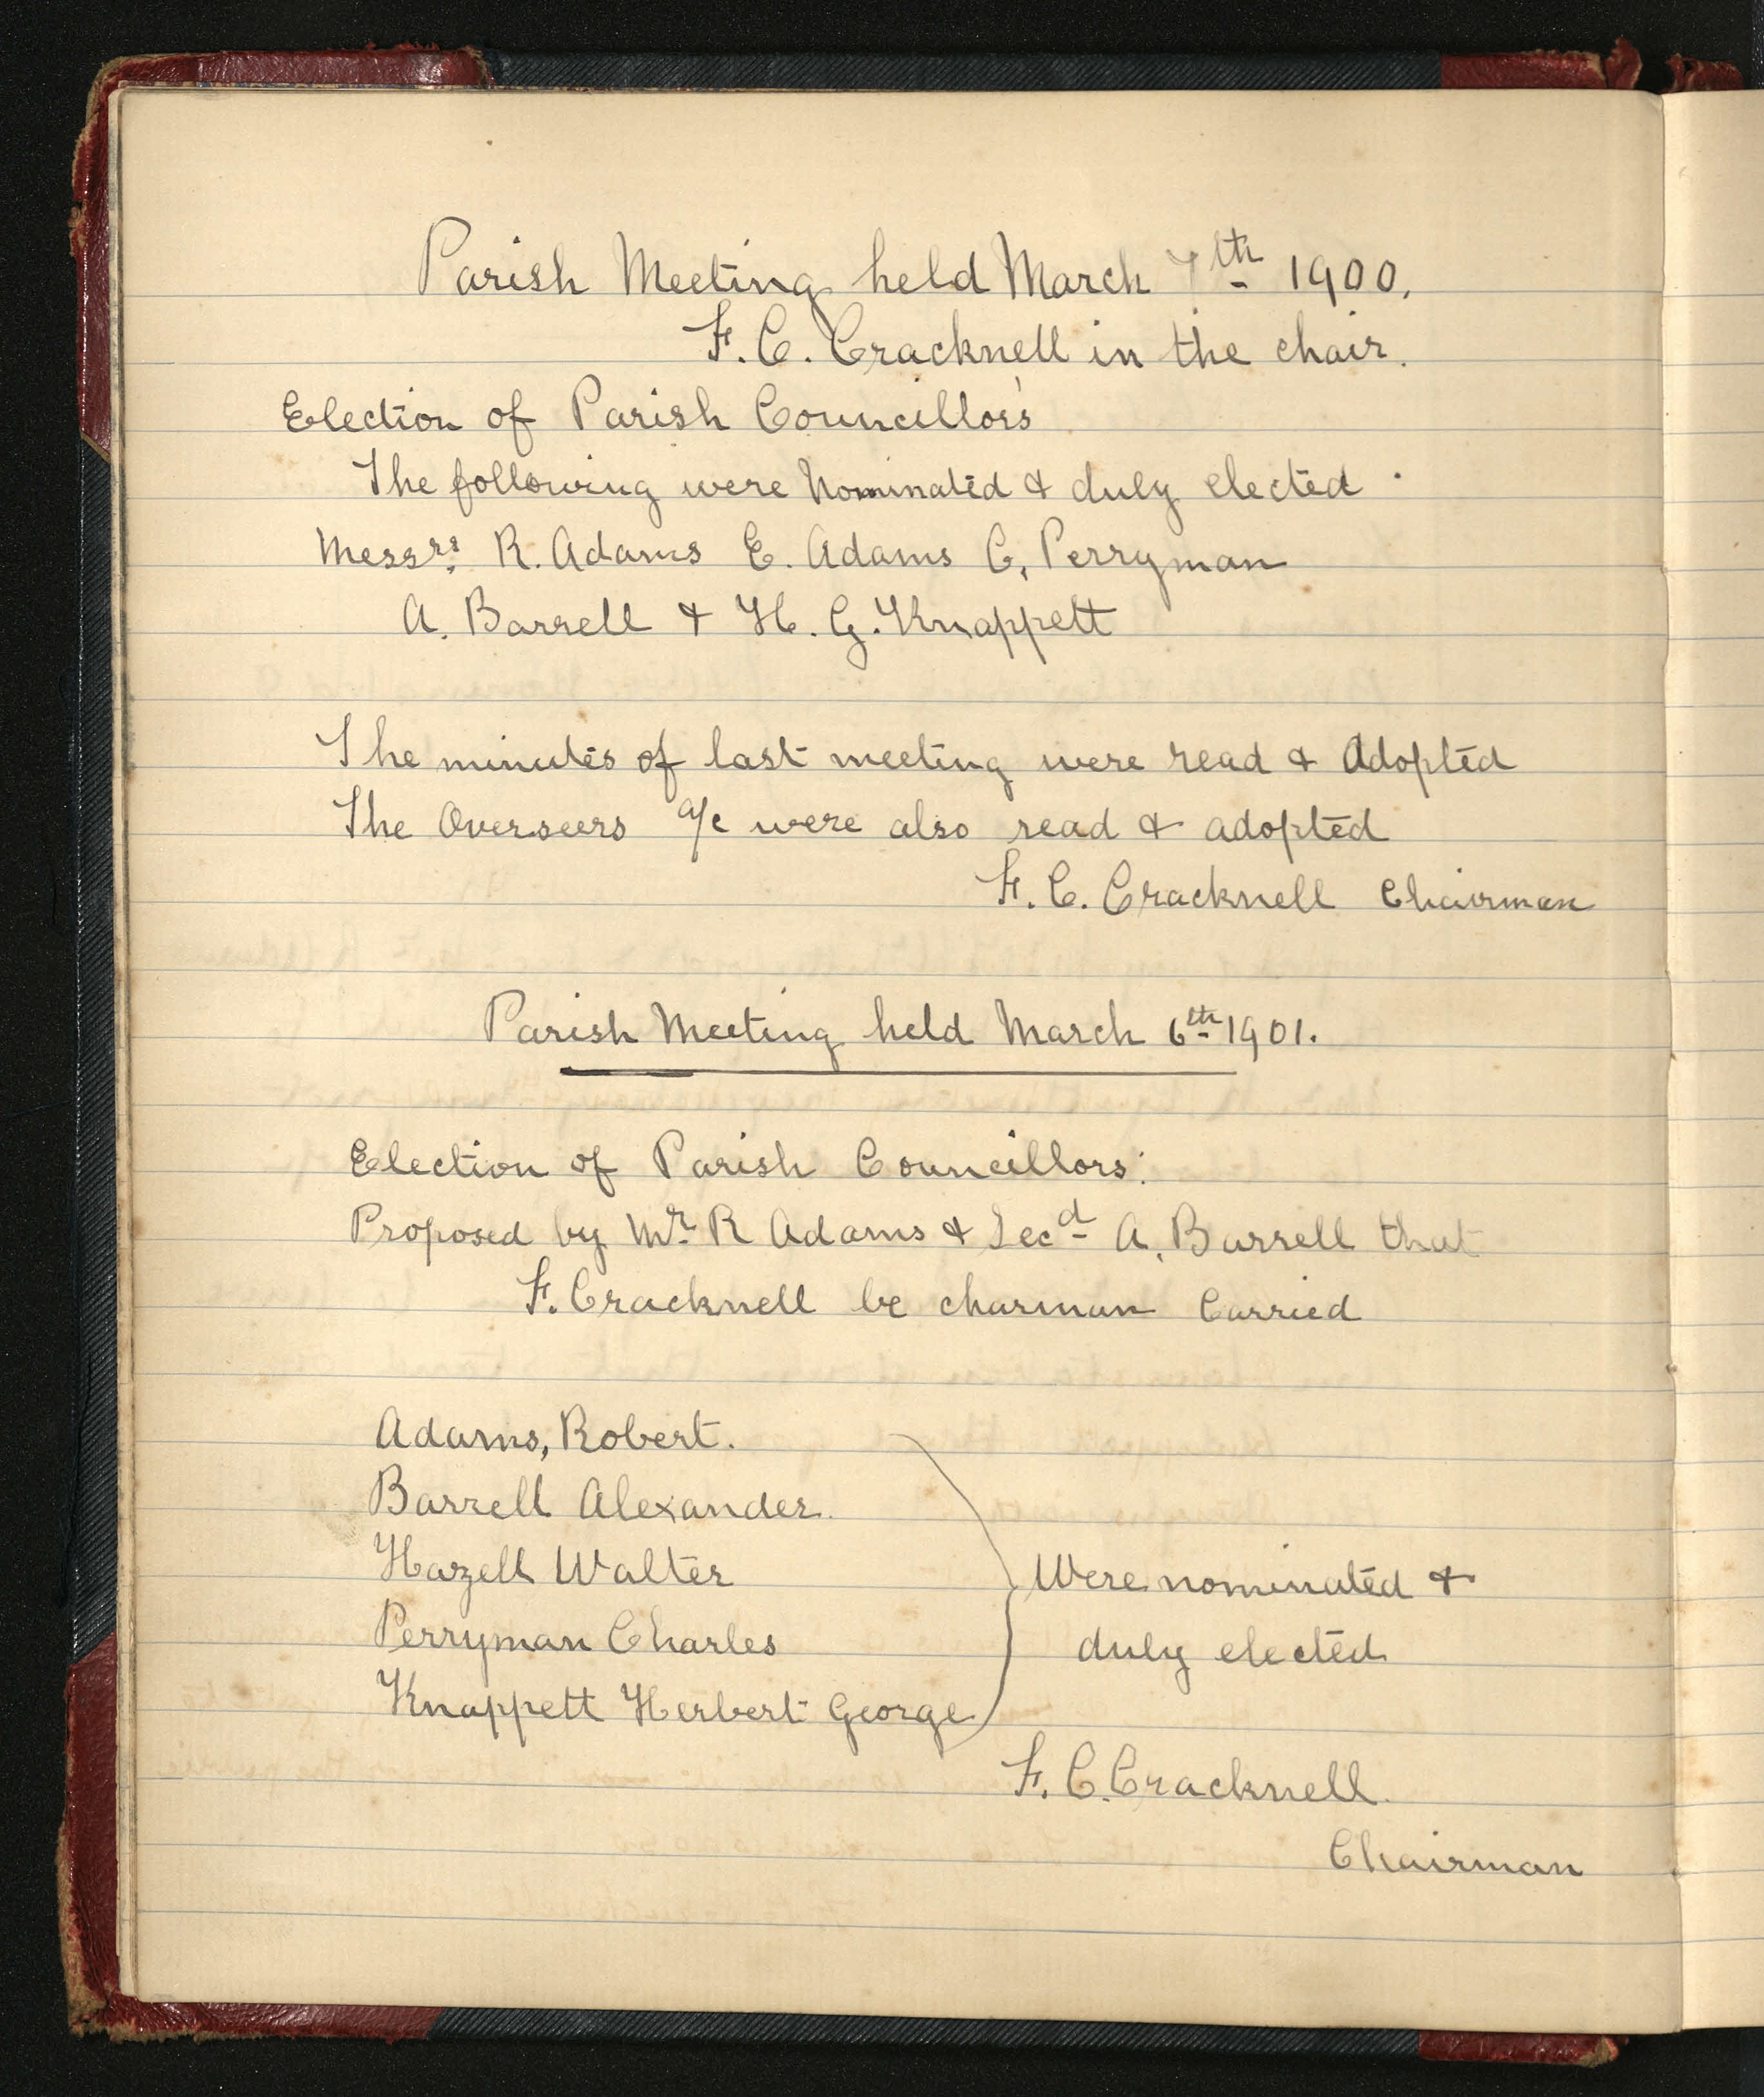 Parish Meeting held March 7th 1900.
F. C. Cracknell in the chair.
Election of Parish Councillor's
The following were Nominated & duly elected
Messrs. R. Adams E. Adams C. Perryman
A. Barrell & H. G. Knappett
The minutes of last meeting were read & Adopted
The Overseers a/c were also read & adopted
F. C. Cracknell Chairman
Parish Meeting held March 6th 1901.
Election of Parish Councillors:
Proposed by Mr. R Adams & Secd A. Barrell that
F. Cracknell be charman Carried
Adams, Robert.
Barrell Alexander.
Hazell Walter
Perryman Charles
Knappett Herbert George
Were nominated &
duly elected
F. C. Cracknell.
Chairman